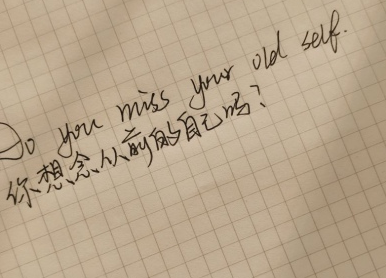 Do you miss your old self.
你想念从前的自己吗?